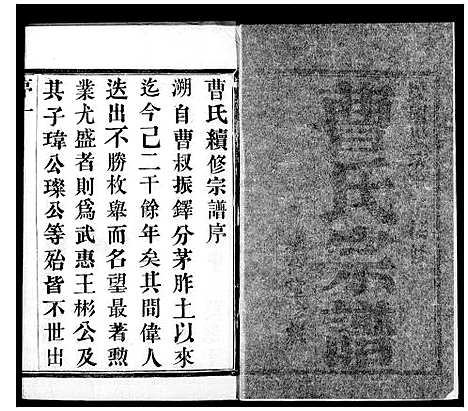 曹氏宗譜
曹氏續修宗譜序
溯自曹叔振鐸分茅胙土以來
迄今已二千餘年矣其間偉人
迭出不勝枚舉而名望最著勲
業尤盛者則爲武惠王彬公及
其子瑋公璨公等殆皆不世出
序一